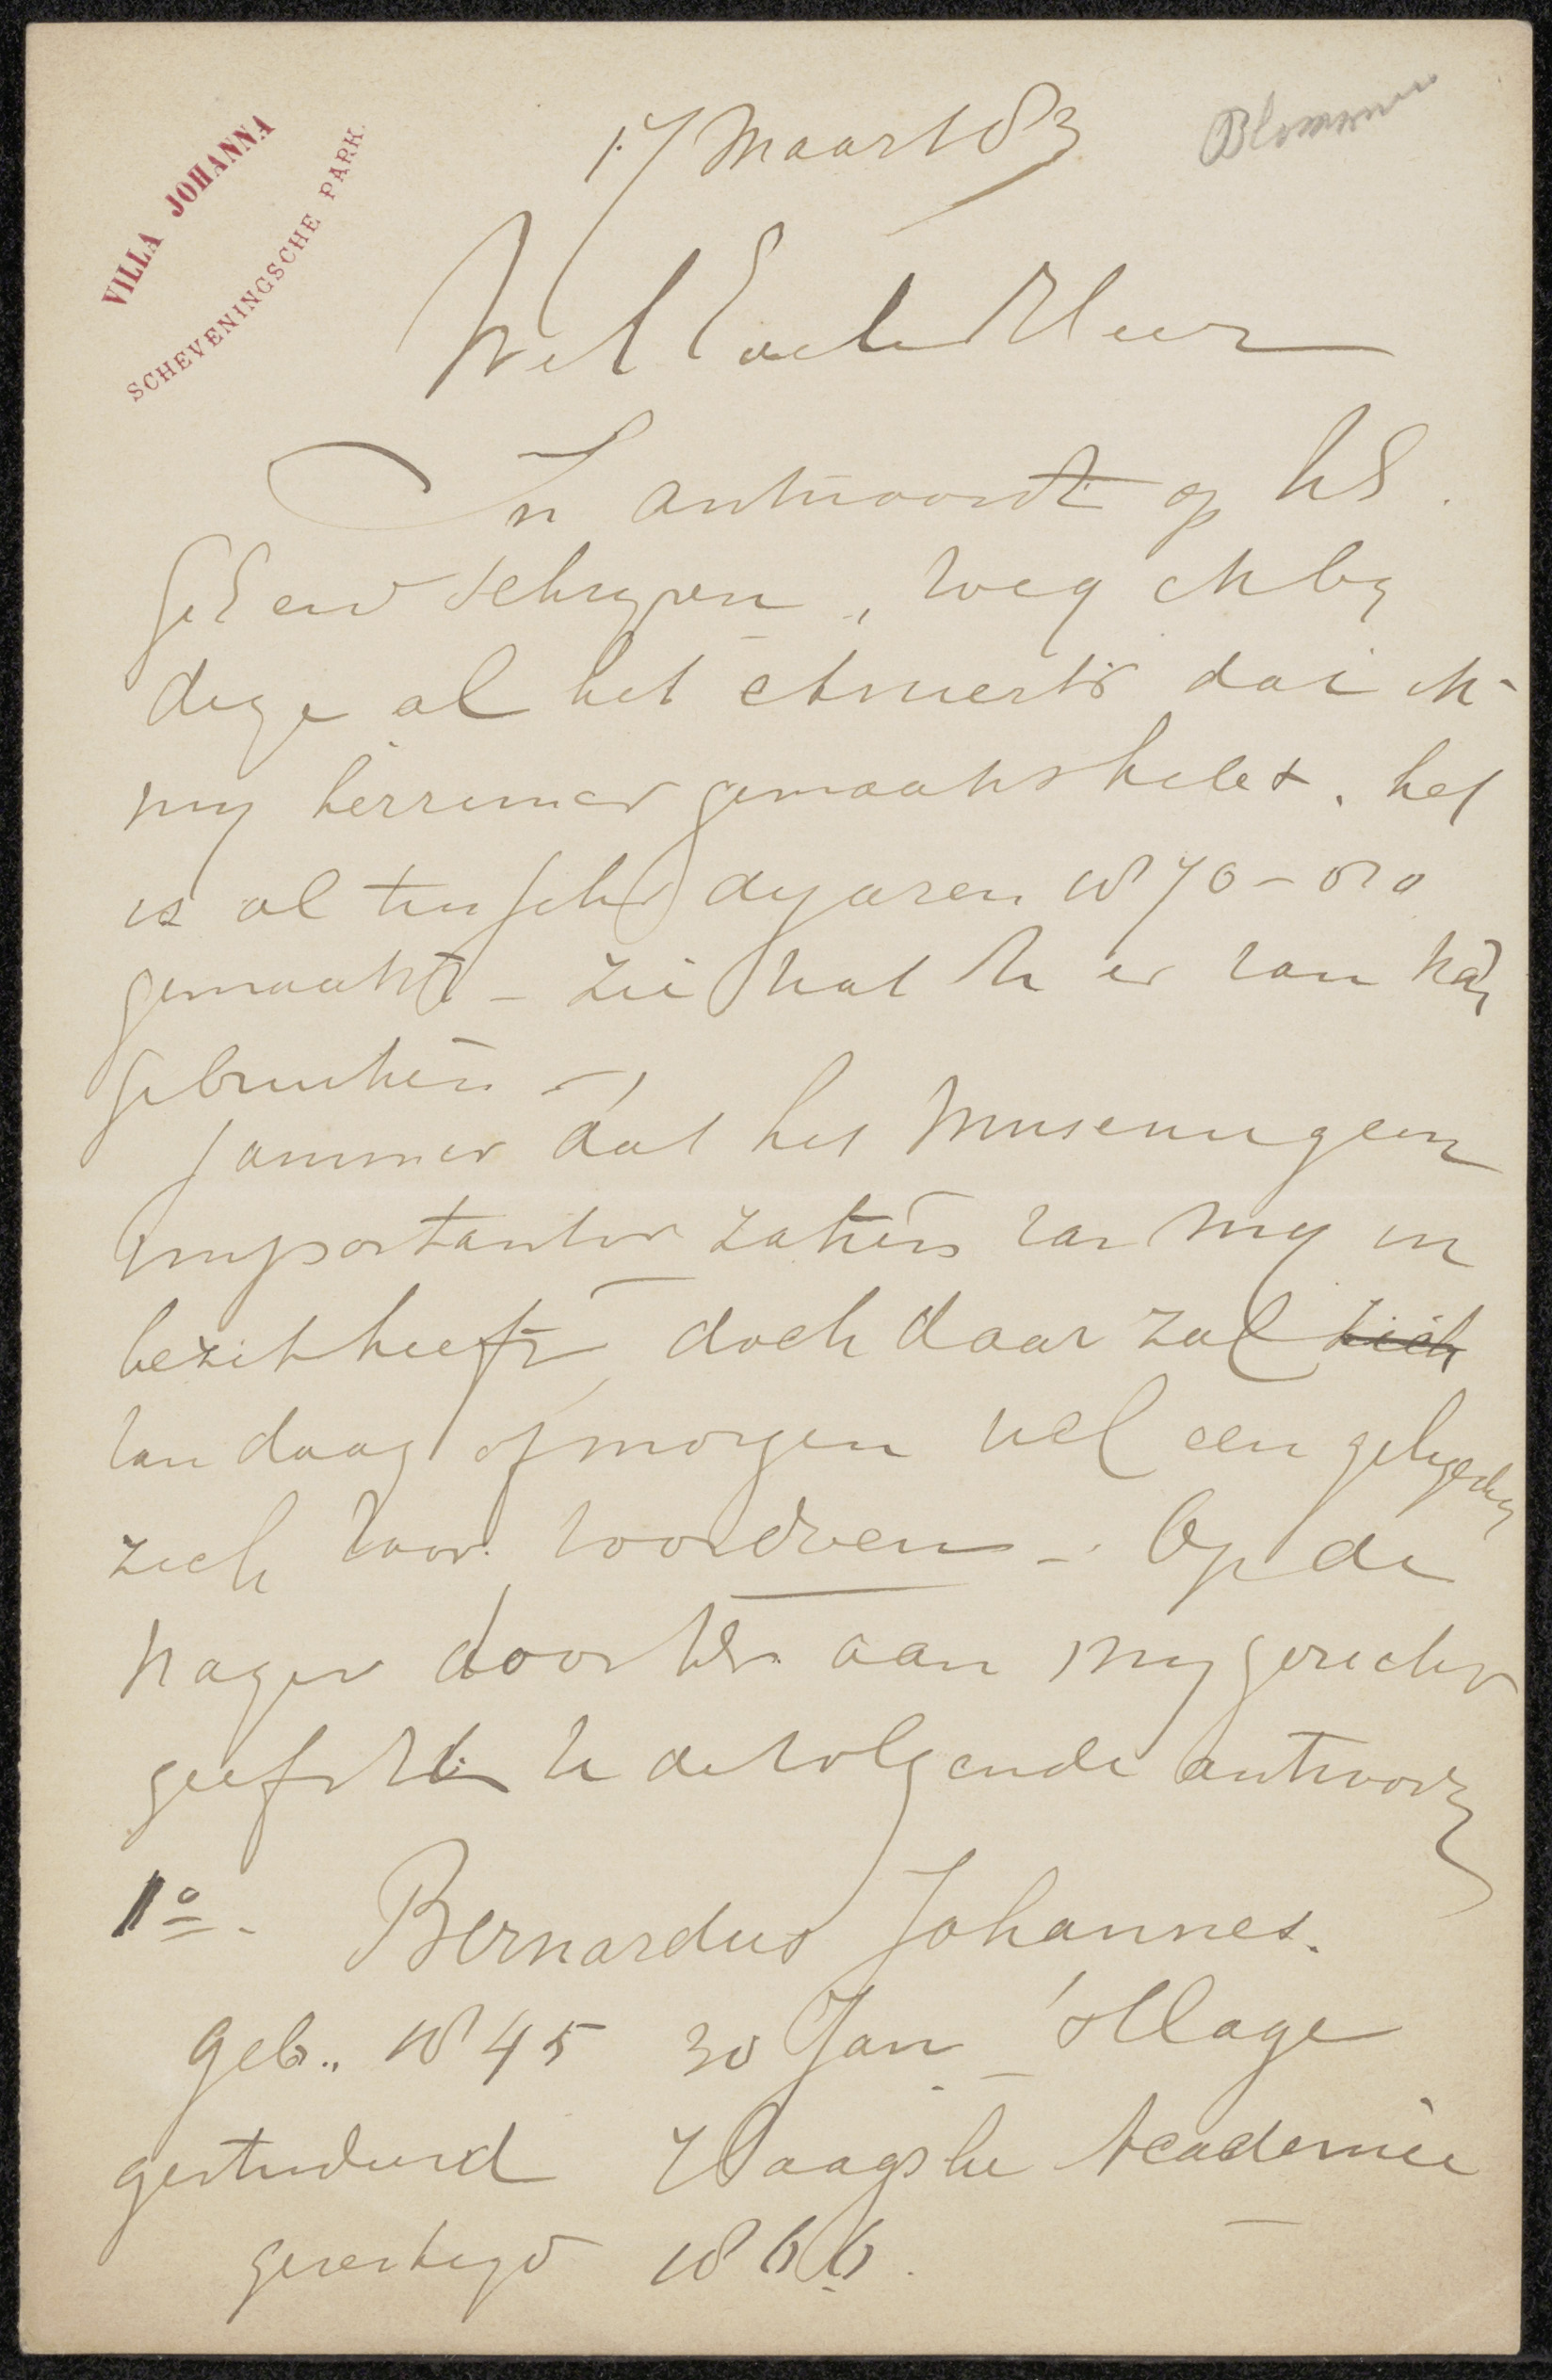 VILLA JOHANNA
SCHEVENINGSCHE PARK.
Blommers
17 Maart 83
WelEdele Heer
In antwoordt op UE.
geEerd schryven, voeg ik by
deze al het etswerk dat ik
my herriner gemaakt hebt. het
is al tusschen de jaren 1870-80
gemaakt - zie wat U er van kan
gebruiken -
Jammer dat het Museum geen
importanter zaken van my in
bezit heeft, doch daar zal zich
van daag of morgen wel een gelegenheid
zich voor voordoen - Op de
vragen door UE. aan my gericht
geef ik U de volgende antwoord
1o. Bernardus Johannes.
geb.. 1845 30 Jan 'sHage
gestudeerd Haagsche Academie
gevestigd 1866.